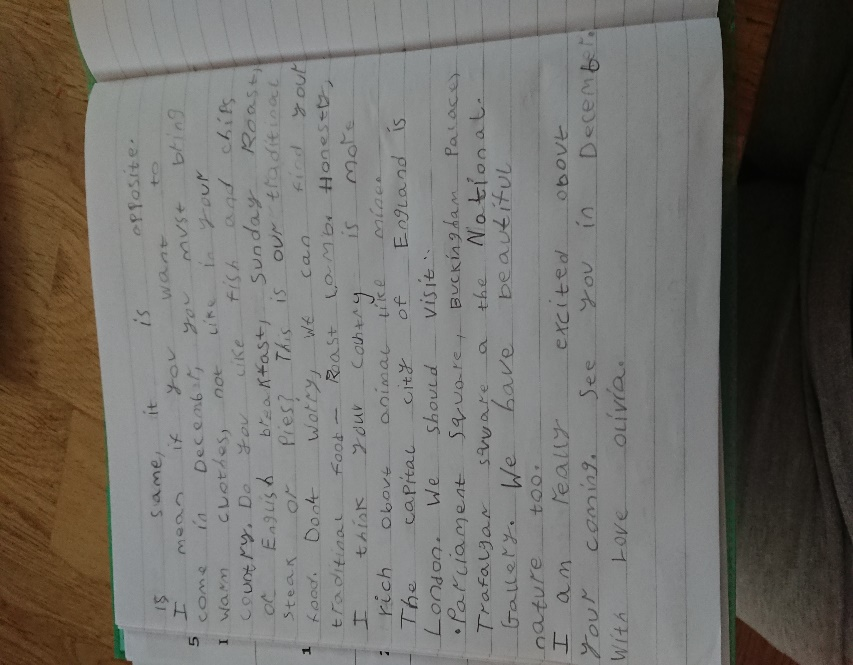 is same, it is opposite.
I mean if you want to
come in December, you must bring
warm clothes, not like in your
country. Do you like fish and chips
or English breakfast, Sunday Roast,
steak or Pies? This is our traditional
food. Dont worry, we can find your
traditinal food - Roast Lamb. Honestly,
I think your country is more
rich about animal like mine.
The capital city of England is
London. We should visit:
• Parliament Square, Buckingham Palace,
Trafalgar square a the National
Gallery. We have beautiful
nature too.
I am really excited about
your coming. See you in December.
With Love Olivia.